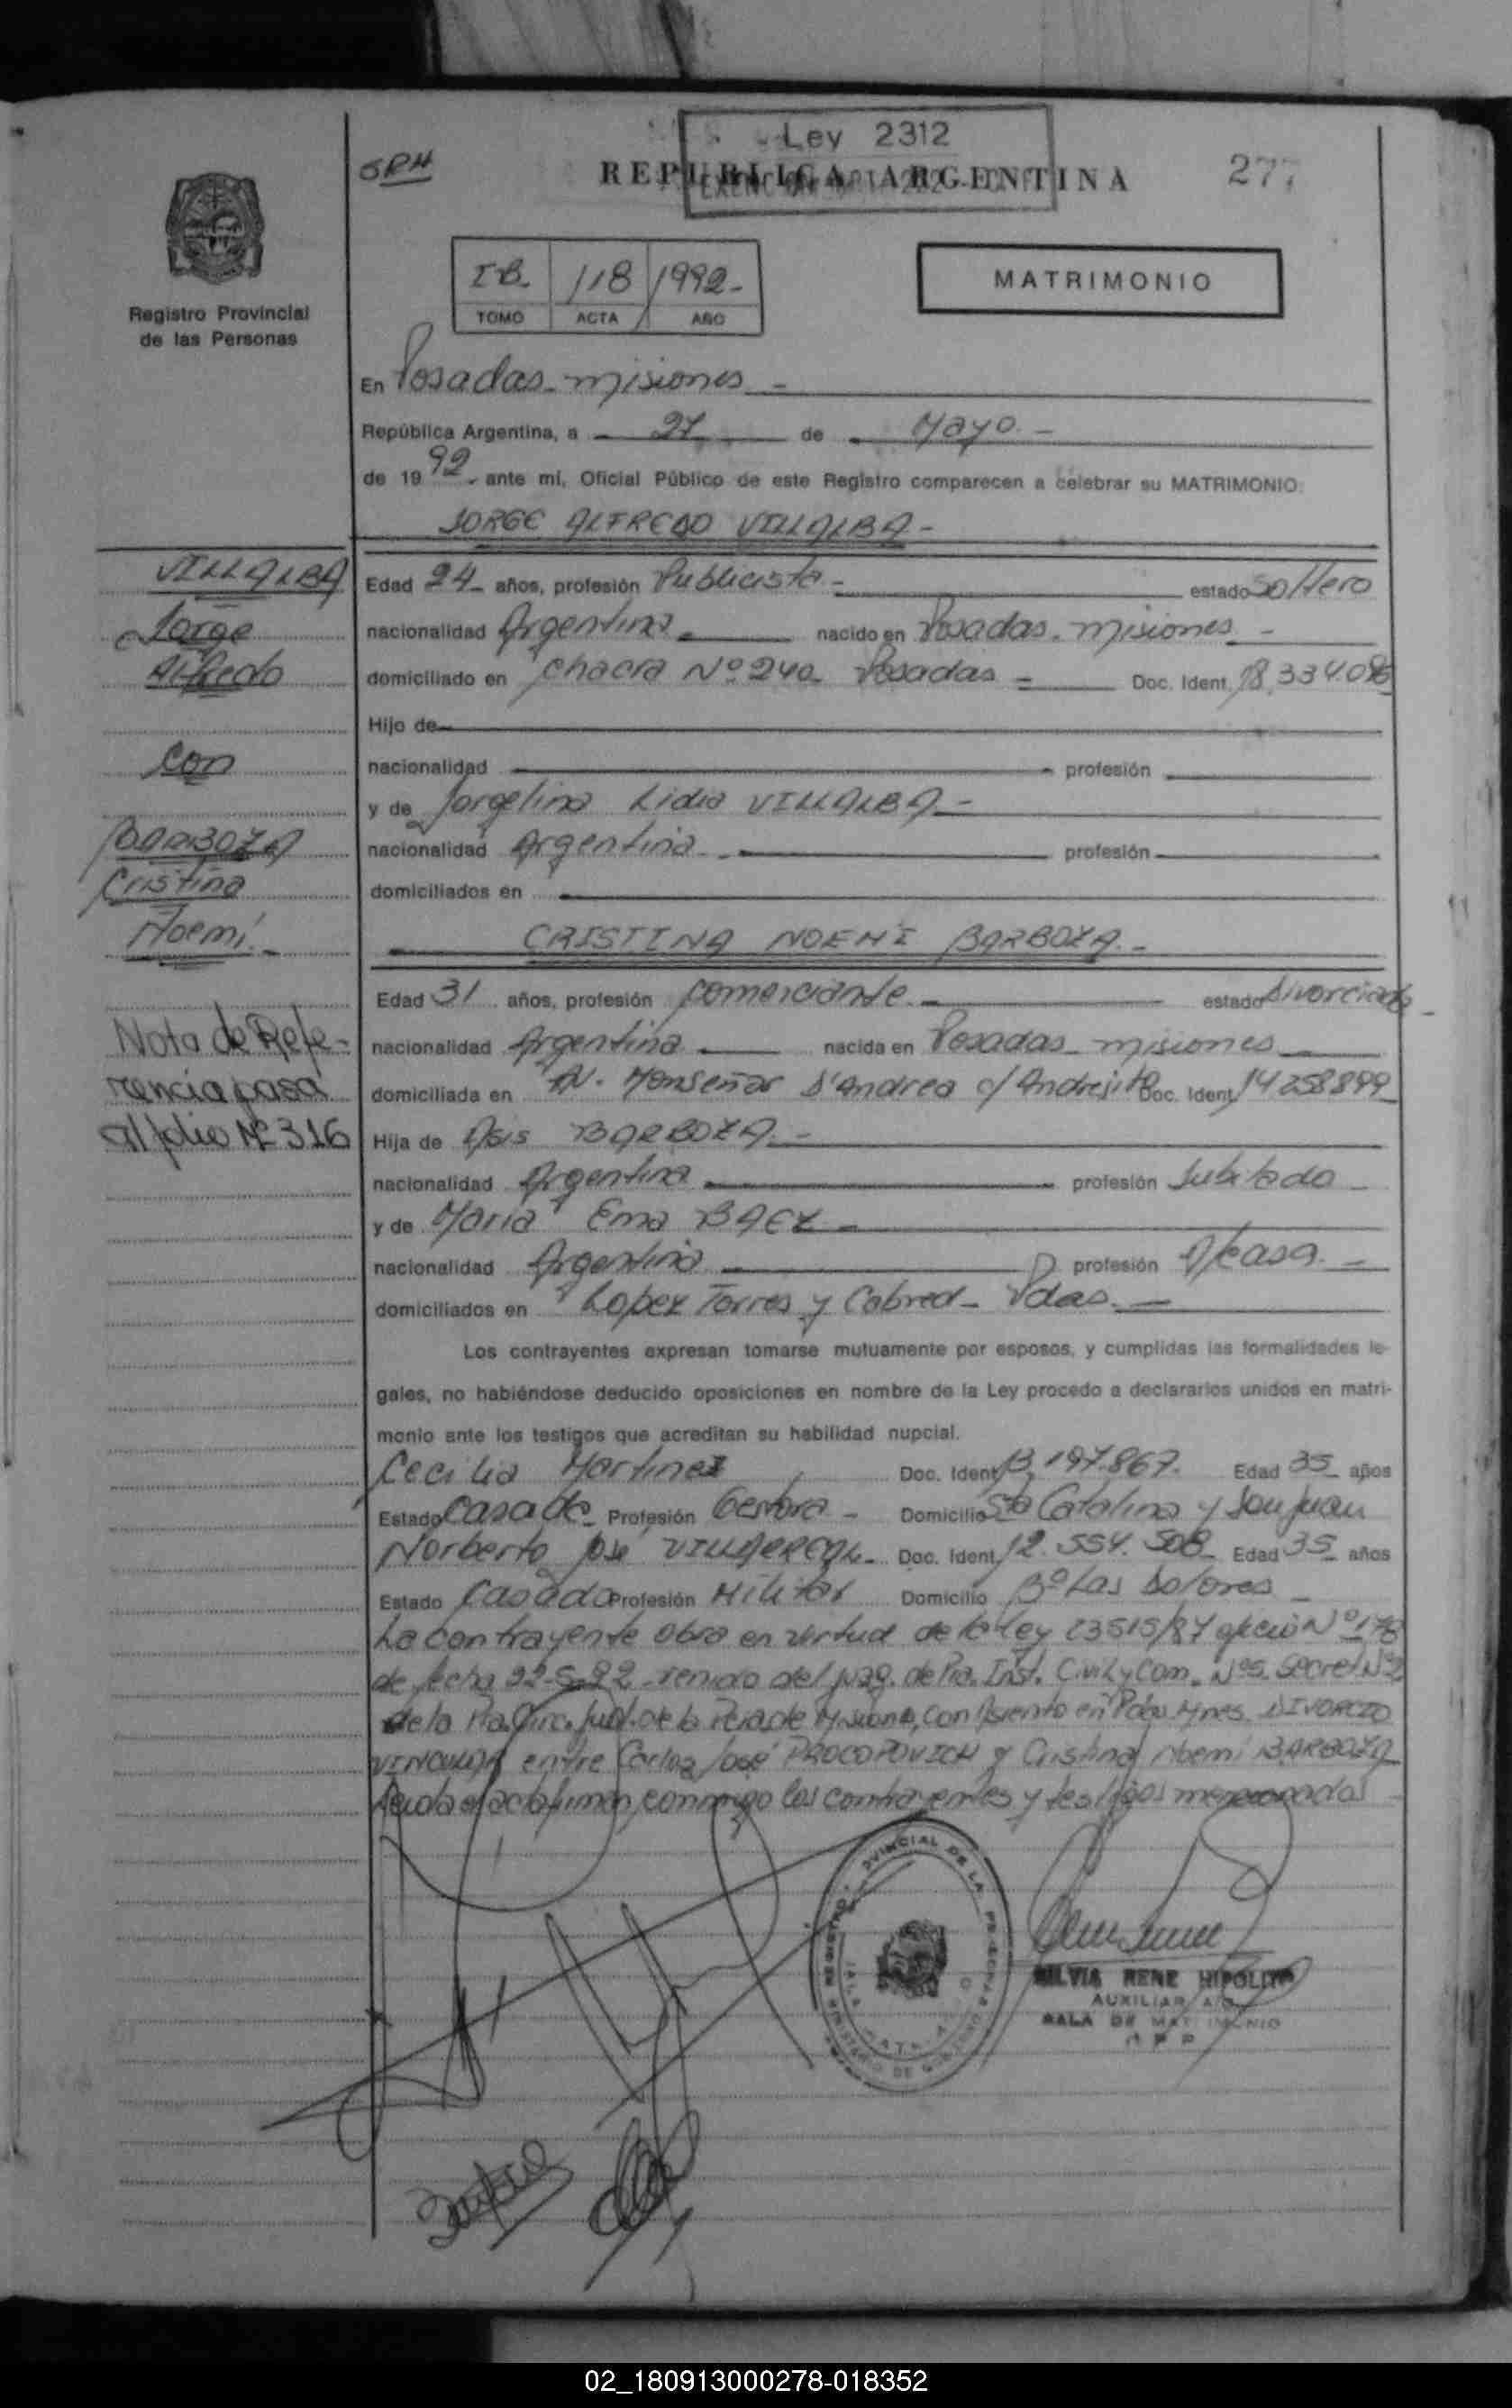 Ley 2312
SRH
REPUBLICA ARGENTINA
277
I B. 118 1992-
TOMO ACTA AÑO
MATRIMONIO
Registro Provincial
de las Personas
En Posadas - misiones -
República Argentina, a 27 de Mayo. -
de 1992, ante mí, Oficial Público de este Registro comparecen a celebrar su MATRIMONIO:
JORGE ALFREDO VILLALBA -
VILLALBA
Jorge
Alfredo
con
BARBOZA
Cristina
Noemí. -
Nota de Refe-
rencia pasa
al folio Nº 316
Edad 24 - años, profesión Publicista - estado Soltero
nacionalidad Argentina nacido en Posadas - misiones -
domiciliado en Chacra Nº 240 - Posadas - Doc. Ident. 18.334.096
Hijo de
nacionalidad profesión
y de Jorgelina Lidia VILLALBA -
nacionalidad Argentina profesión
domiciliados en
CRISTINA NOEMI BARBOZA. -
Edad 31 años, profesión comerciante estado divorciada
nacionalidad Argentina nacida en Posadas - misiones
domiciliada en Av. Monseñor D'Andrea c/ Andresito Doc. Ident. 14258899
Hija de Asis BARBOZA. -
nacionalidad Argentina profesión Jubilado -
y de María Ema BAEZ -
nacionalidad Argentina profesión d/casa. -
domiciliados en Lopez Torres y Cabred - Pdas. -
Los contrayentes expresan tomarse mutuamente por esposos, y cumplidas las formalidades le-
gales, no habiéndose deducido oposiciones en nombre de la Ley procedo a declararlos unidos en matri-
monio ante los testigos que acreditan su habilidad nupcial.
Cecilia Martinez Doc. Ident. 13.197.867. Edad 35 años
Estado Casada - Profesión Gestora - Domicilio Sta Catalina y San Juan
Norberto José Doc. Ident. 12.554.508 - Edad 35 años
Estado Casado Profesión Militar Domicilio Bº Las Dolores -
La contrayente obra en virtud de la ley 23515/87 oficio Nº 178
de fecha 22-5-92 - venido del Juzg. de Pra. Inst. Civil y Com. Nº5. Secret. Nº2
de la Pra. Circ. Jud. de la Pcia de Misiones, con Asiento en Pdas. Mnes. DIVORCIO
VINCULAR entre Carlos José PROCOPOVICH y Cristina Noemí BARBOZA
Leida el acta firman conmigo los contrayentes y testigos mencionados
SILVIA RENE HIPOLITO
AUXILIAR
SALA DE MATRIMONIO